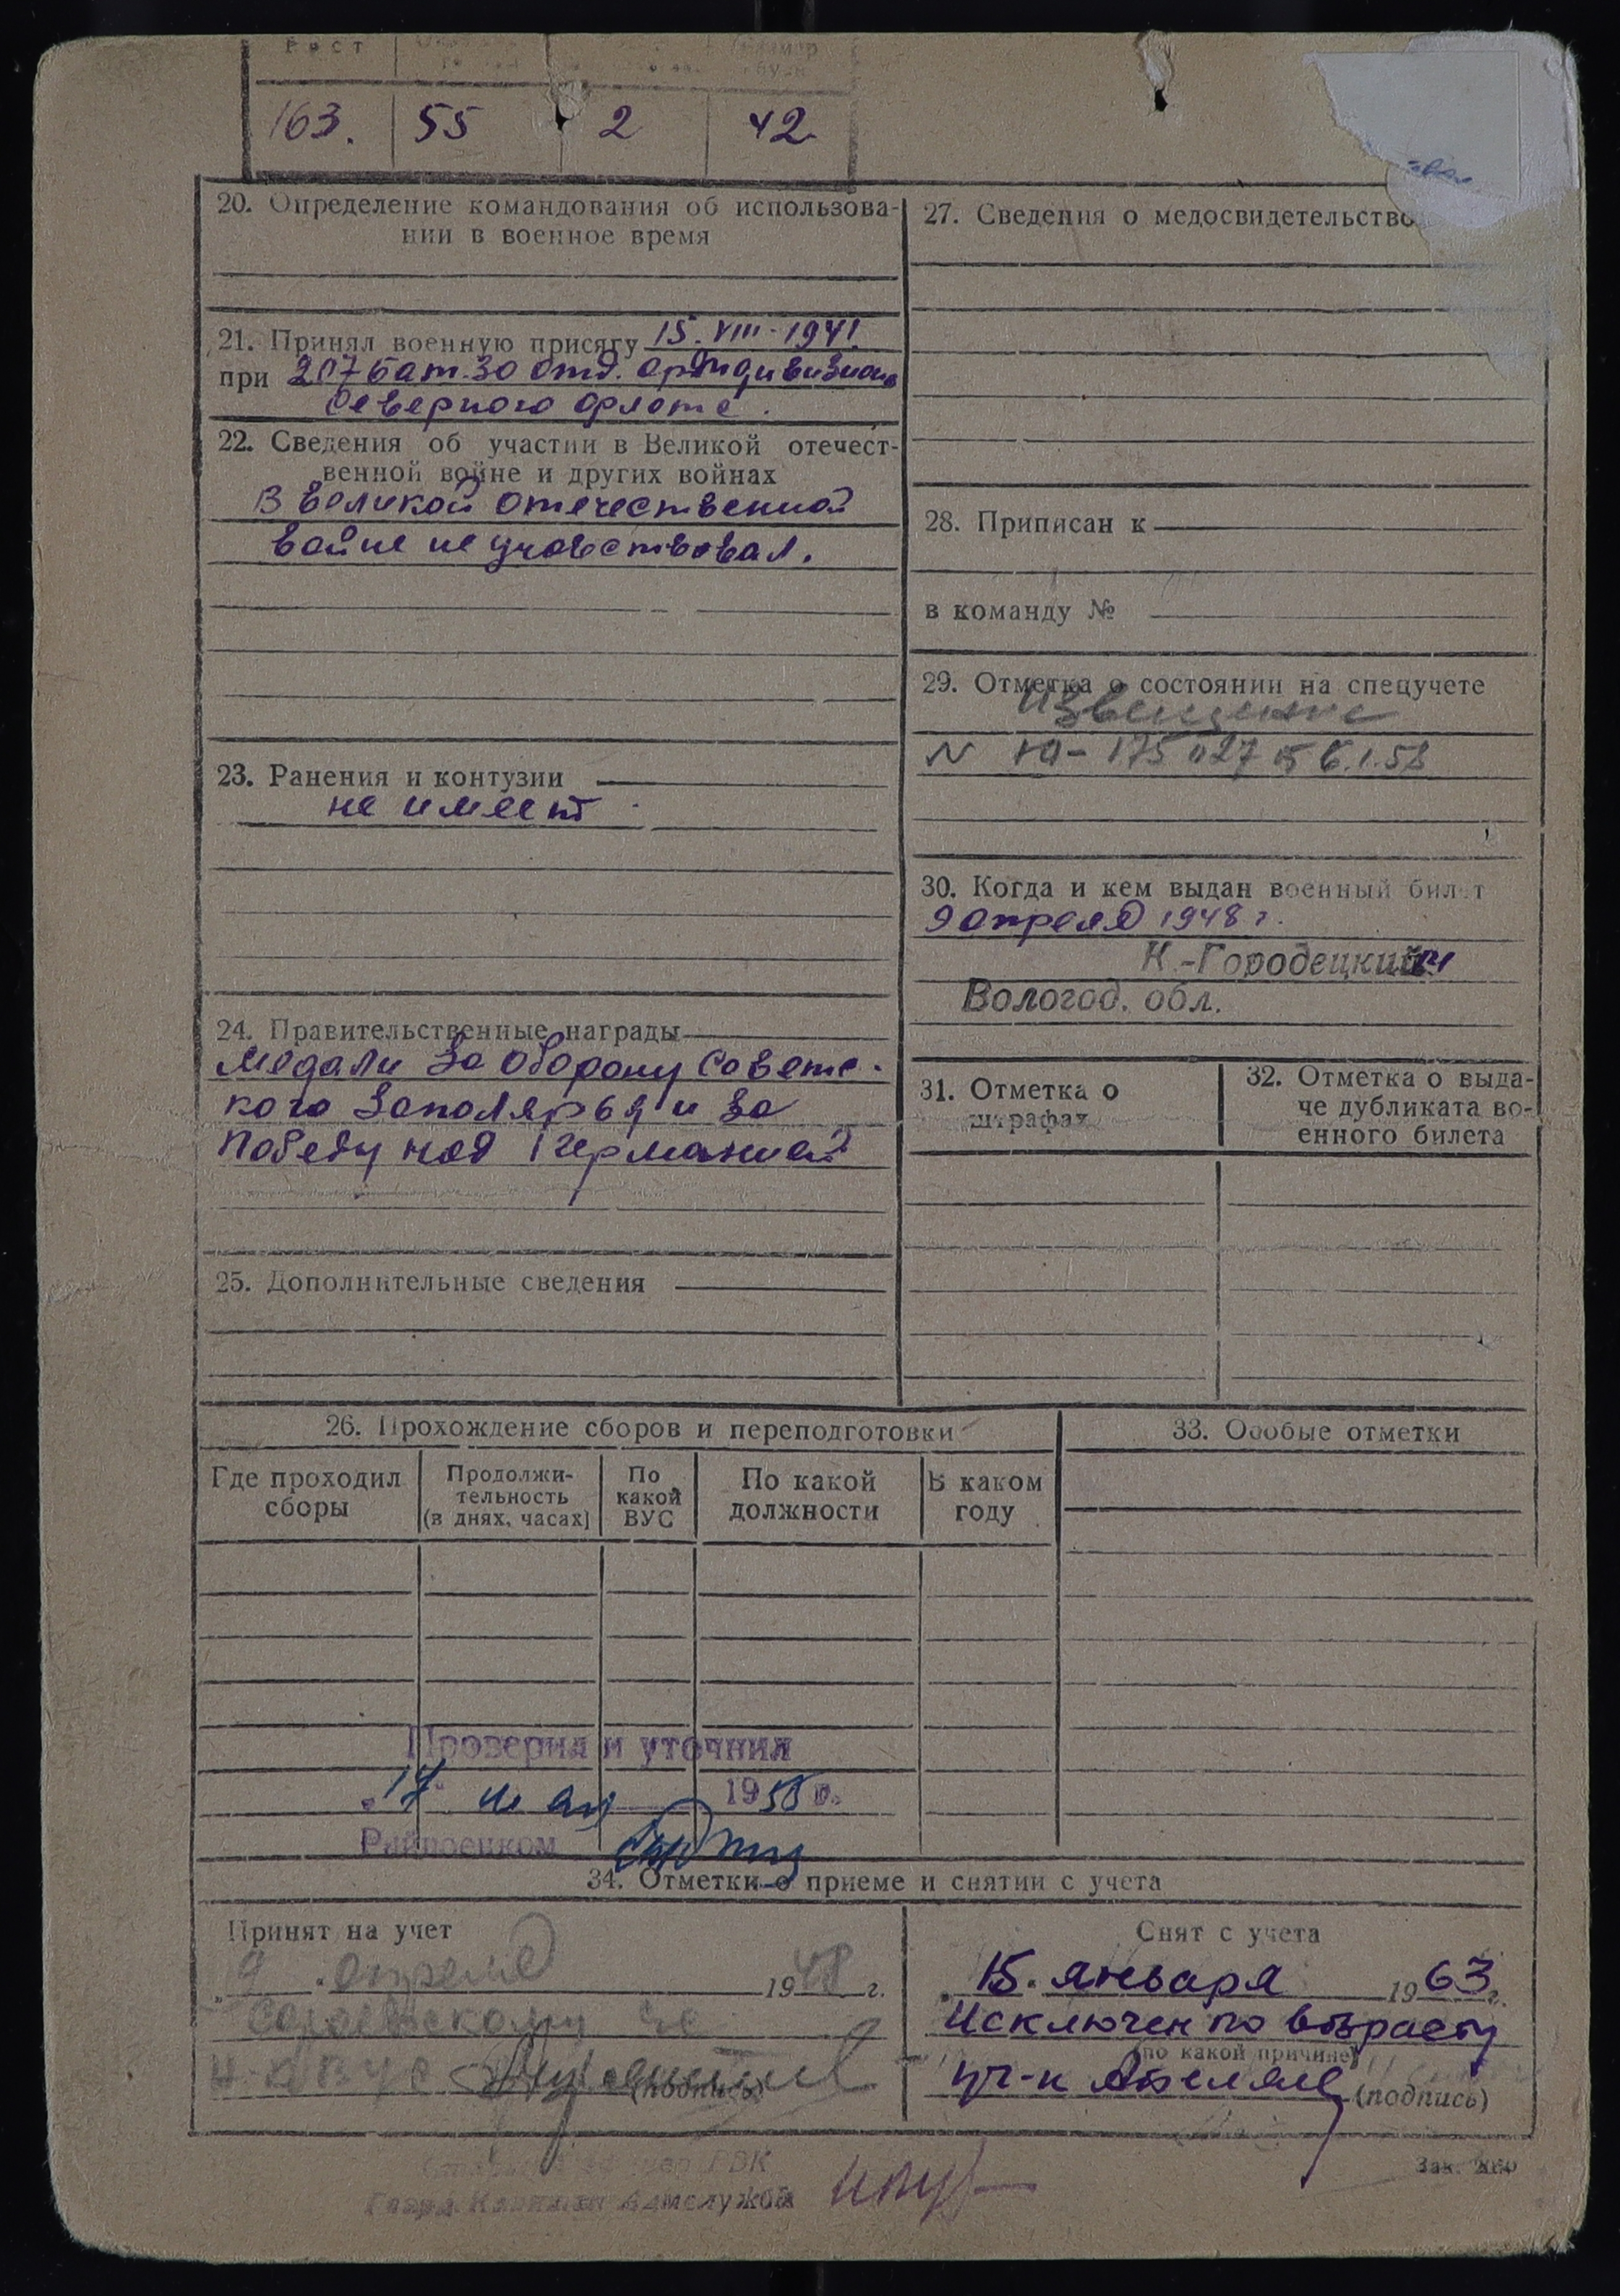 Рост
163. 55 2 42
20. Определение командования об использова-
нии в военное время
21. Принял военную присягу 15.VIII-1941.
при 207 бат. 30 отд. артдивизиона
Северного флота.
22. Сведения об участии в Великой отечест-
венной войне и других войнах
В Великой отечественной
войне не участвовал.
23. Ранения и контузии
не имеет.
24. Правительственные награды
Медали За оборону Советс-
кого Заполярья и за
Победу над Германией
25. Дополнительные сведения
27. Сведения о медосвидетельство
28. Приписан к
в команду №
29. Отметка о состоянии на спецучете
Извещение
30. Когда и кем выдан военный билет
9 апреля 1948 г.
К.-Городецким
Вологод. обл.
31. Отметка о
штрафах
32. Отметка о выда-
че дубликата во-
енного билета
26. Прохождение сборов и переподготовки
Где проходил
сборы
Продолжи-
тельность
(в днях, часах)
По
какой
ВУС
По какой
должности
В каком
году
33. Особые отметки
Проверил и уточнил
„17" мая 1958 г.
Райвоенком
34. Отметки о приеме и снятии с учета
Принят на учет
„9". апреля 1948 г.
(подпись)
Снят с учета
„15". января 1963 г.
Исключен по возрасту
(по какой причине)
(подпись)
РВК
Гвард. Капитан Админслужбы
Зак.